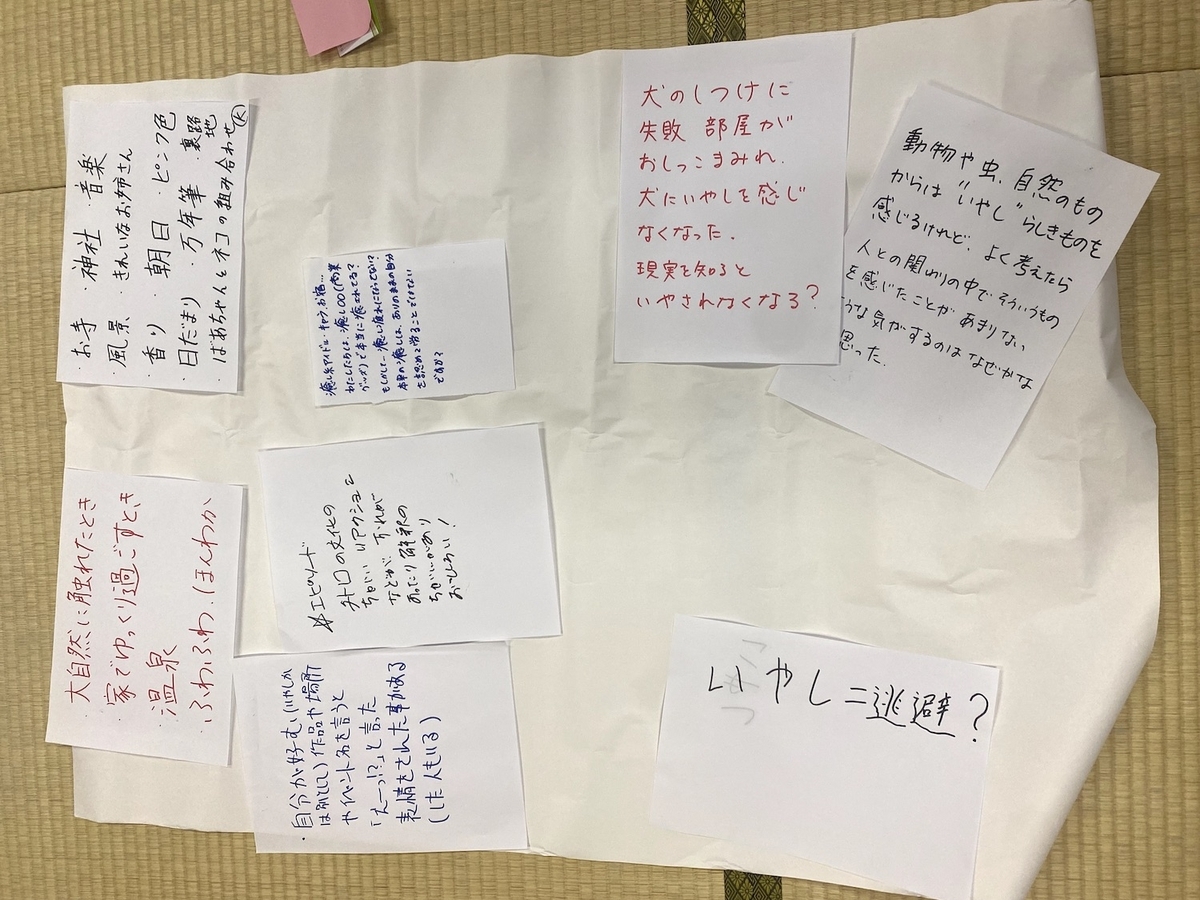 ・お寺 ・神社 ・音楽
・風景 ・きれいなお姉さん
・香り ・朝日 ・ピンク色
・日だまり ・万年筆 ・裏路地
・ばあちゃんとネコの組み合わせ
犬のしつけに
失敗 部屋が
おしっこまみれ.
犬にいやしを感じ
なくなった.
現実を知ると
いやされなくなる?
動物や虫、自然のもの
からは "いやし" らしきものを
感じるけれど、よく考えたら
人との関わりの中でそういうもの
を感じたことがあまりない
うな気がするのはなぜかな
思った.
癒し系アイドル、キャラ、お宿…
わたしたちは、癒し○○(商業
グッズ)で本当に癒されてる?
もしかして…癒し疲れになってない?
本来の癒しは、ありのままの自分
を認めて
ですか?
・大自然に触れたとき
・家でゆっくり過ごすとき
・温泉
・ふわふわ.ほんわか
エピソード
の文化の
ちがい リアクション
などが、それが
あったり 解釈の
ちがいがあり
おもしろい!
・自分が好む(いやしか
は別として)作品や場所
やイベント名を言うと
「えーっ!?」と言った
表情をされた事がある
(した人もいる)
いやし=逃避?